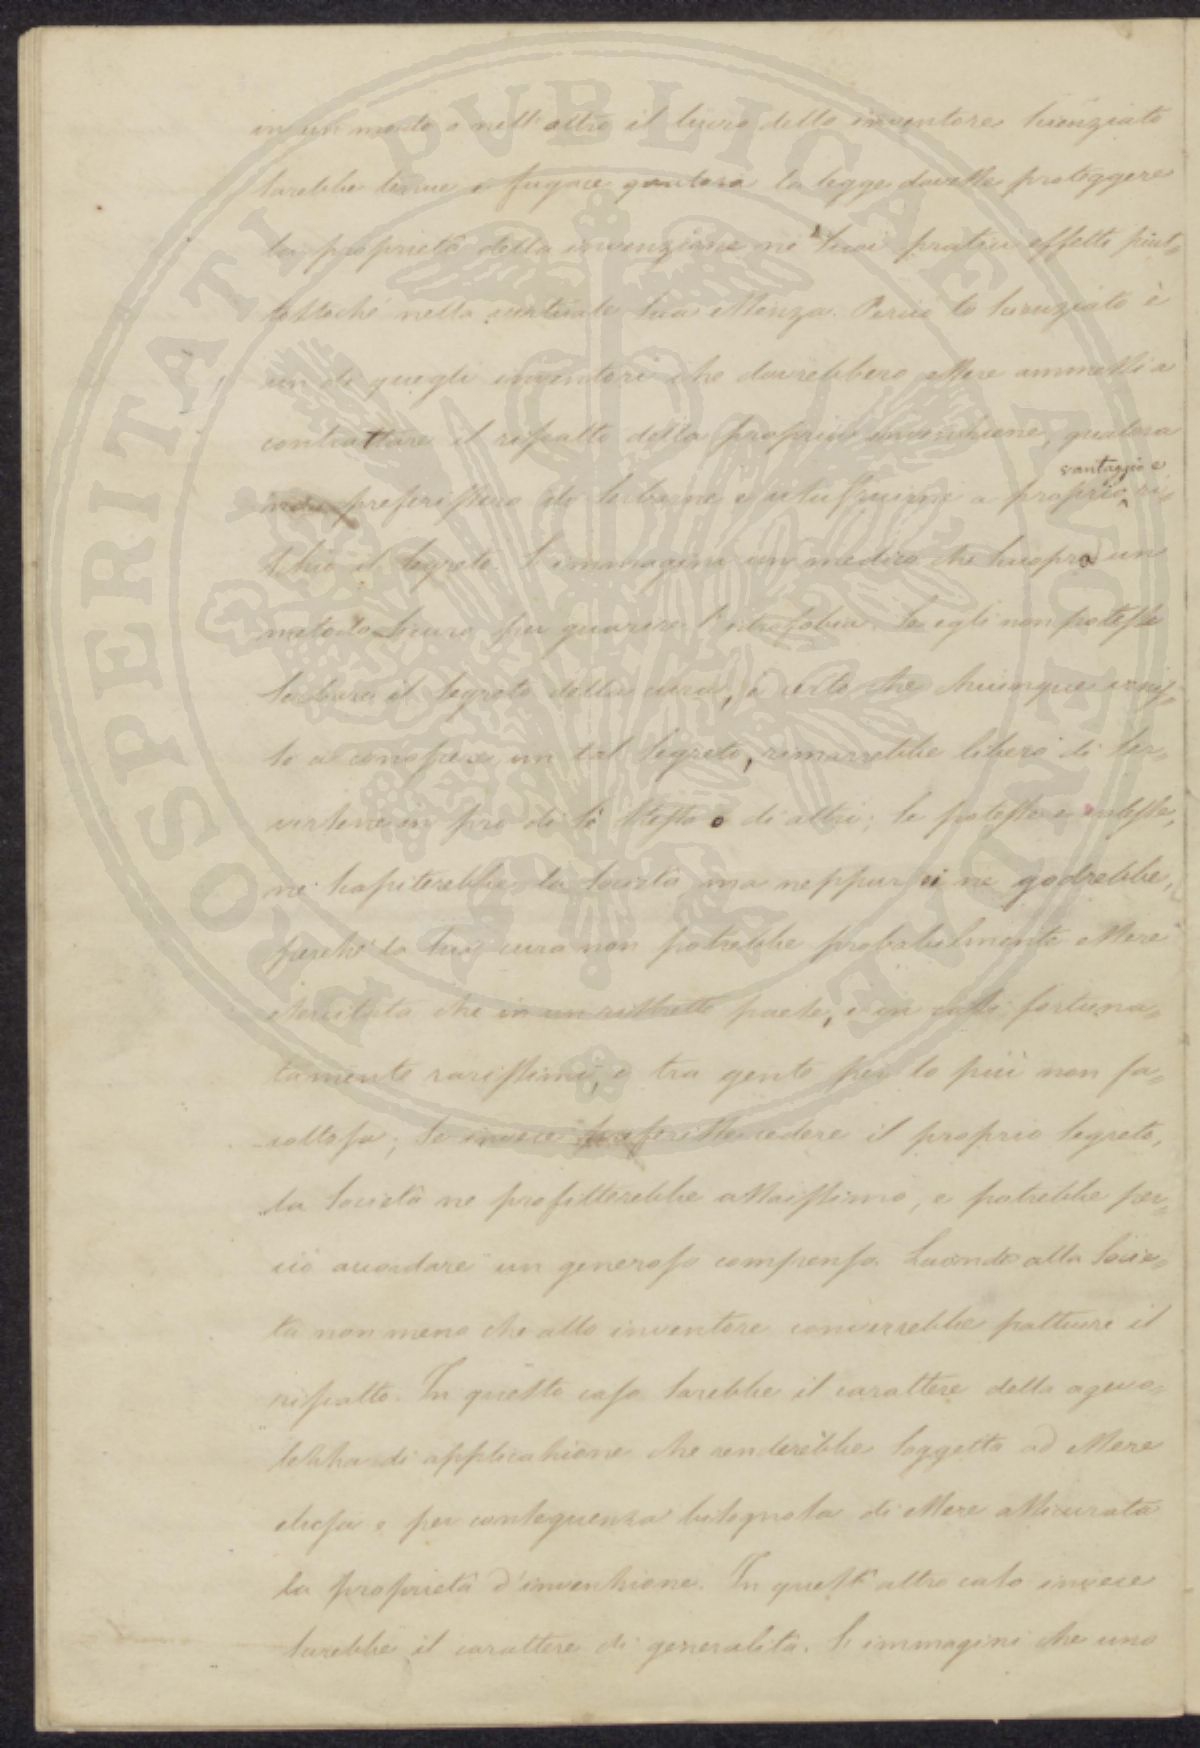 in un modo o nell'altro il lucro dello inventore scienziato
sarebbe tenue e fugace qualora la legge dovesse proteggere
la proprietà della invenzione ne' suoi pratici effetti piut-
tostochè nella virtuale sua essenza. Perciò lo scienziato è
un di quegli inventori che dovrebbero essere ammessi a
contrattare il riscatto della propria invenzione, qualora
non preferissero di serbarne e usufruirne a proprio vantaggio e ri-
schio il segreto. S'immagini un medico che scuopra un
metodo sicuro per guarire l'idrofobia. Se egli non potesse
serbare il segreto della cura, è certo che chiunque venis-
se a conoscere un tal segreto, rimarrebbe libero di ser-
virsene in pro di sè stesso o di altri; se potesse e volesse,
ne scapiterebbe la società, ma neppur ei ne godrebbe,
perchè la sua cura non potrebbe probabilmente essere
esercitata che in un ristretto paese, e in casi fortuna-
tamente rarissimi, e tra gente per lo più non fa-
coltosa; se invece preferisse cedere il proprio segreto,
la società ne profitterebbe assaissimo, e potrebbe per-
ciò accordare un generoso compenso. Laonde alla socie-
tà non meno che allo inventore converrebbe pattuire il
riscatto. In questo caso sarebbe il carattere della agevo-
lezza di applicazione che renderebbe soggetta ad essere
elusa e per conseguenza bisognosa di essere assicurata
la proprietà d'invenzione. In quest'altro caso invece
sarebbe il carattere di generalità. S'immagini che uno
PROSPERITATI PVBLICAE AVGENDAE